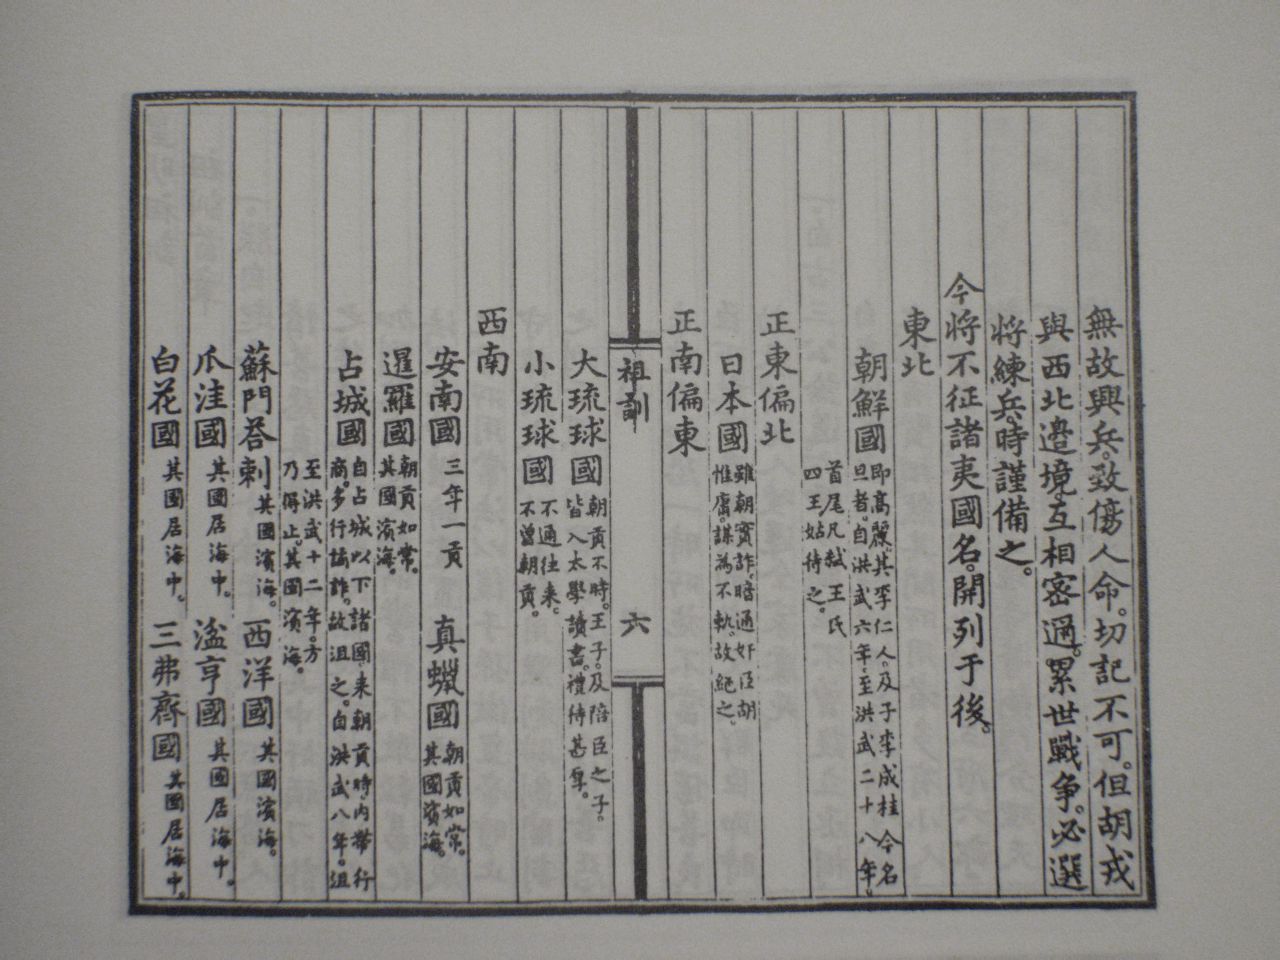 無故興兵。致傷人命。切記不可。但胡戎
與西北邊境。互相密邇。累世戰爭。必選
將練兵。時謹備之。
今將不征諸夷國名。開列于後。
東北
朝鮮國 即高麗。其李仁人。及子李成桂今名
旦者。自洪武六年。至洪武二十八年。
首尾凡弒王氏
四王。姑待之。
正東偏北
日本國 雖朝實詐。暗通奸臣胡
惟庸。謀為不軌。故絕之。
正南偏東
祖訓 六
大琉球國 朝貢不時。王子。及陪臣之子。
皆入太學讀書。禮待甚厚。
小琉球國 不通往來。
不曾朝貢。
西南
安南國 三年一貢 真蠟國 朝貢如常。
其國濱海。
暹羅國 朝貢如常。
其國濱海。
占城國 自占城以下諸國。來朝貢時。內帶行
商。多行譎詐。故沮之。自洪武八年。沮
至洪武十二年。方
乃得止。其國濱海。
蘇門荅剌 其國濱海。 西洋國 其國濱海。
爪洼國 其國居海中。 湓亨國 其國居海中。
白花國 其國居海中。 三弗齊國 其國居海中。